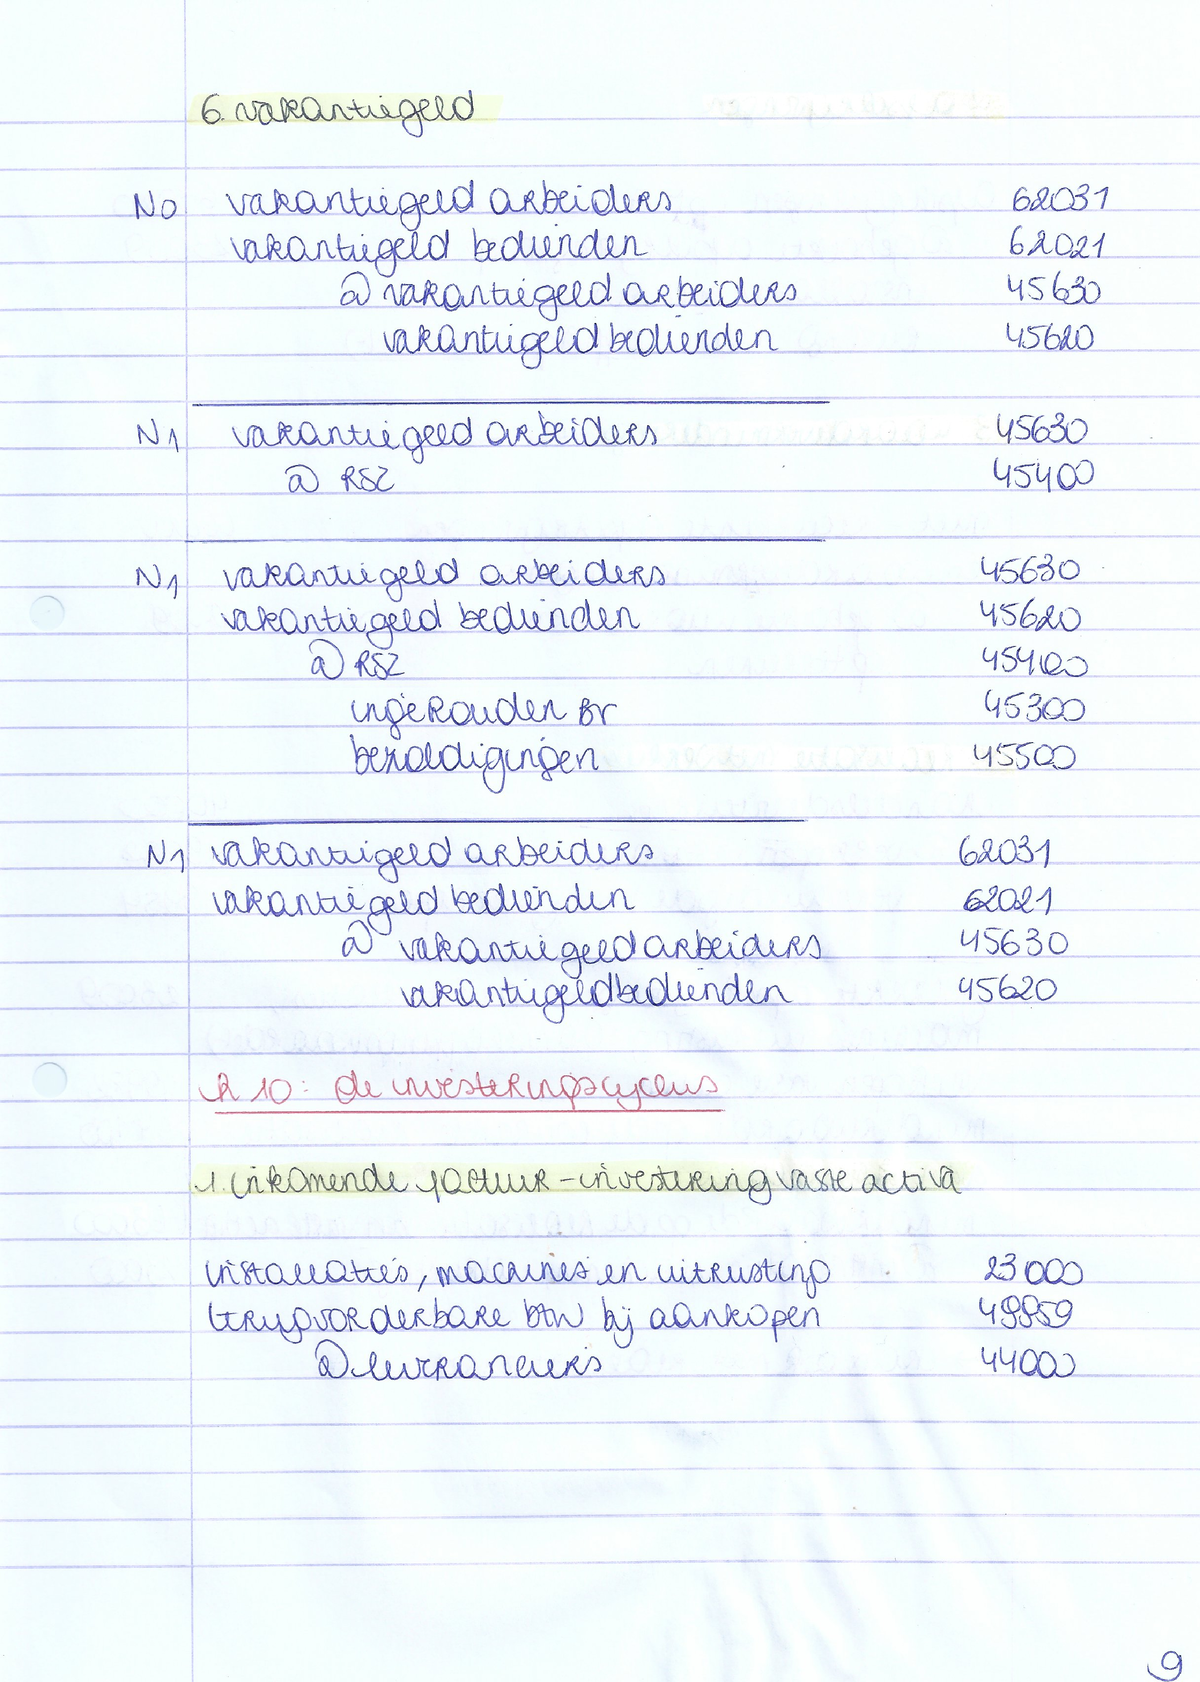 6. vakantiegeld
N0 vakantiegeld arbeiders 62031
vakantiegeld bedienden 62021
@ vakantiegeld arbeiders 45630
vakantiegeld bedienden 45620
N1 vakantiegeld arbeiders 45630
@ RSZ 45400
N1 vakantiegeld arbeiders 45630
vakantiegeld bedienden 45620
@ RSZ 45400
ingehouden BV 45300
bezoldigingen 45500
N1 vakantiegeld arbeiders 62031
vakantiegeld bedienden 62021
@ vakantiegeld arbeiders 45630
vakantiegeld bedienden 45620
H 10: de investeringscyclus
1. inkomende factuur - investering vaste activa
installaties, machines en uitrusting 23000
terugvorderbare btw bij aankopen 49959
@ leveranciers 44000
9